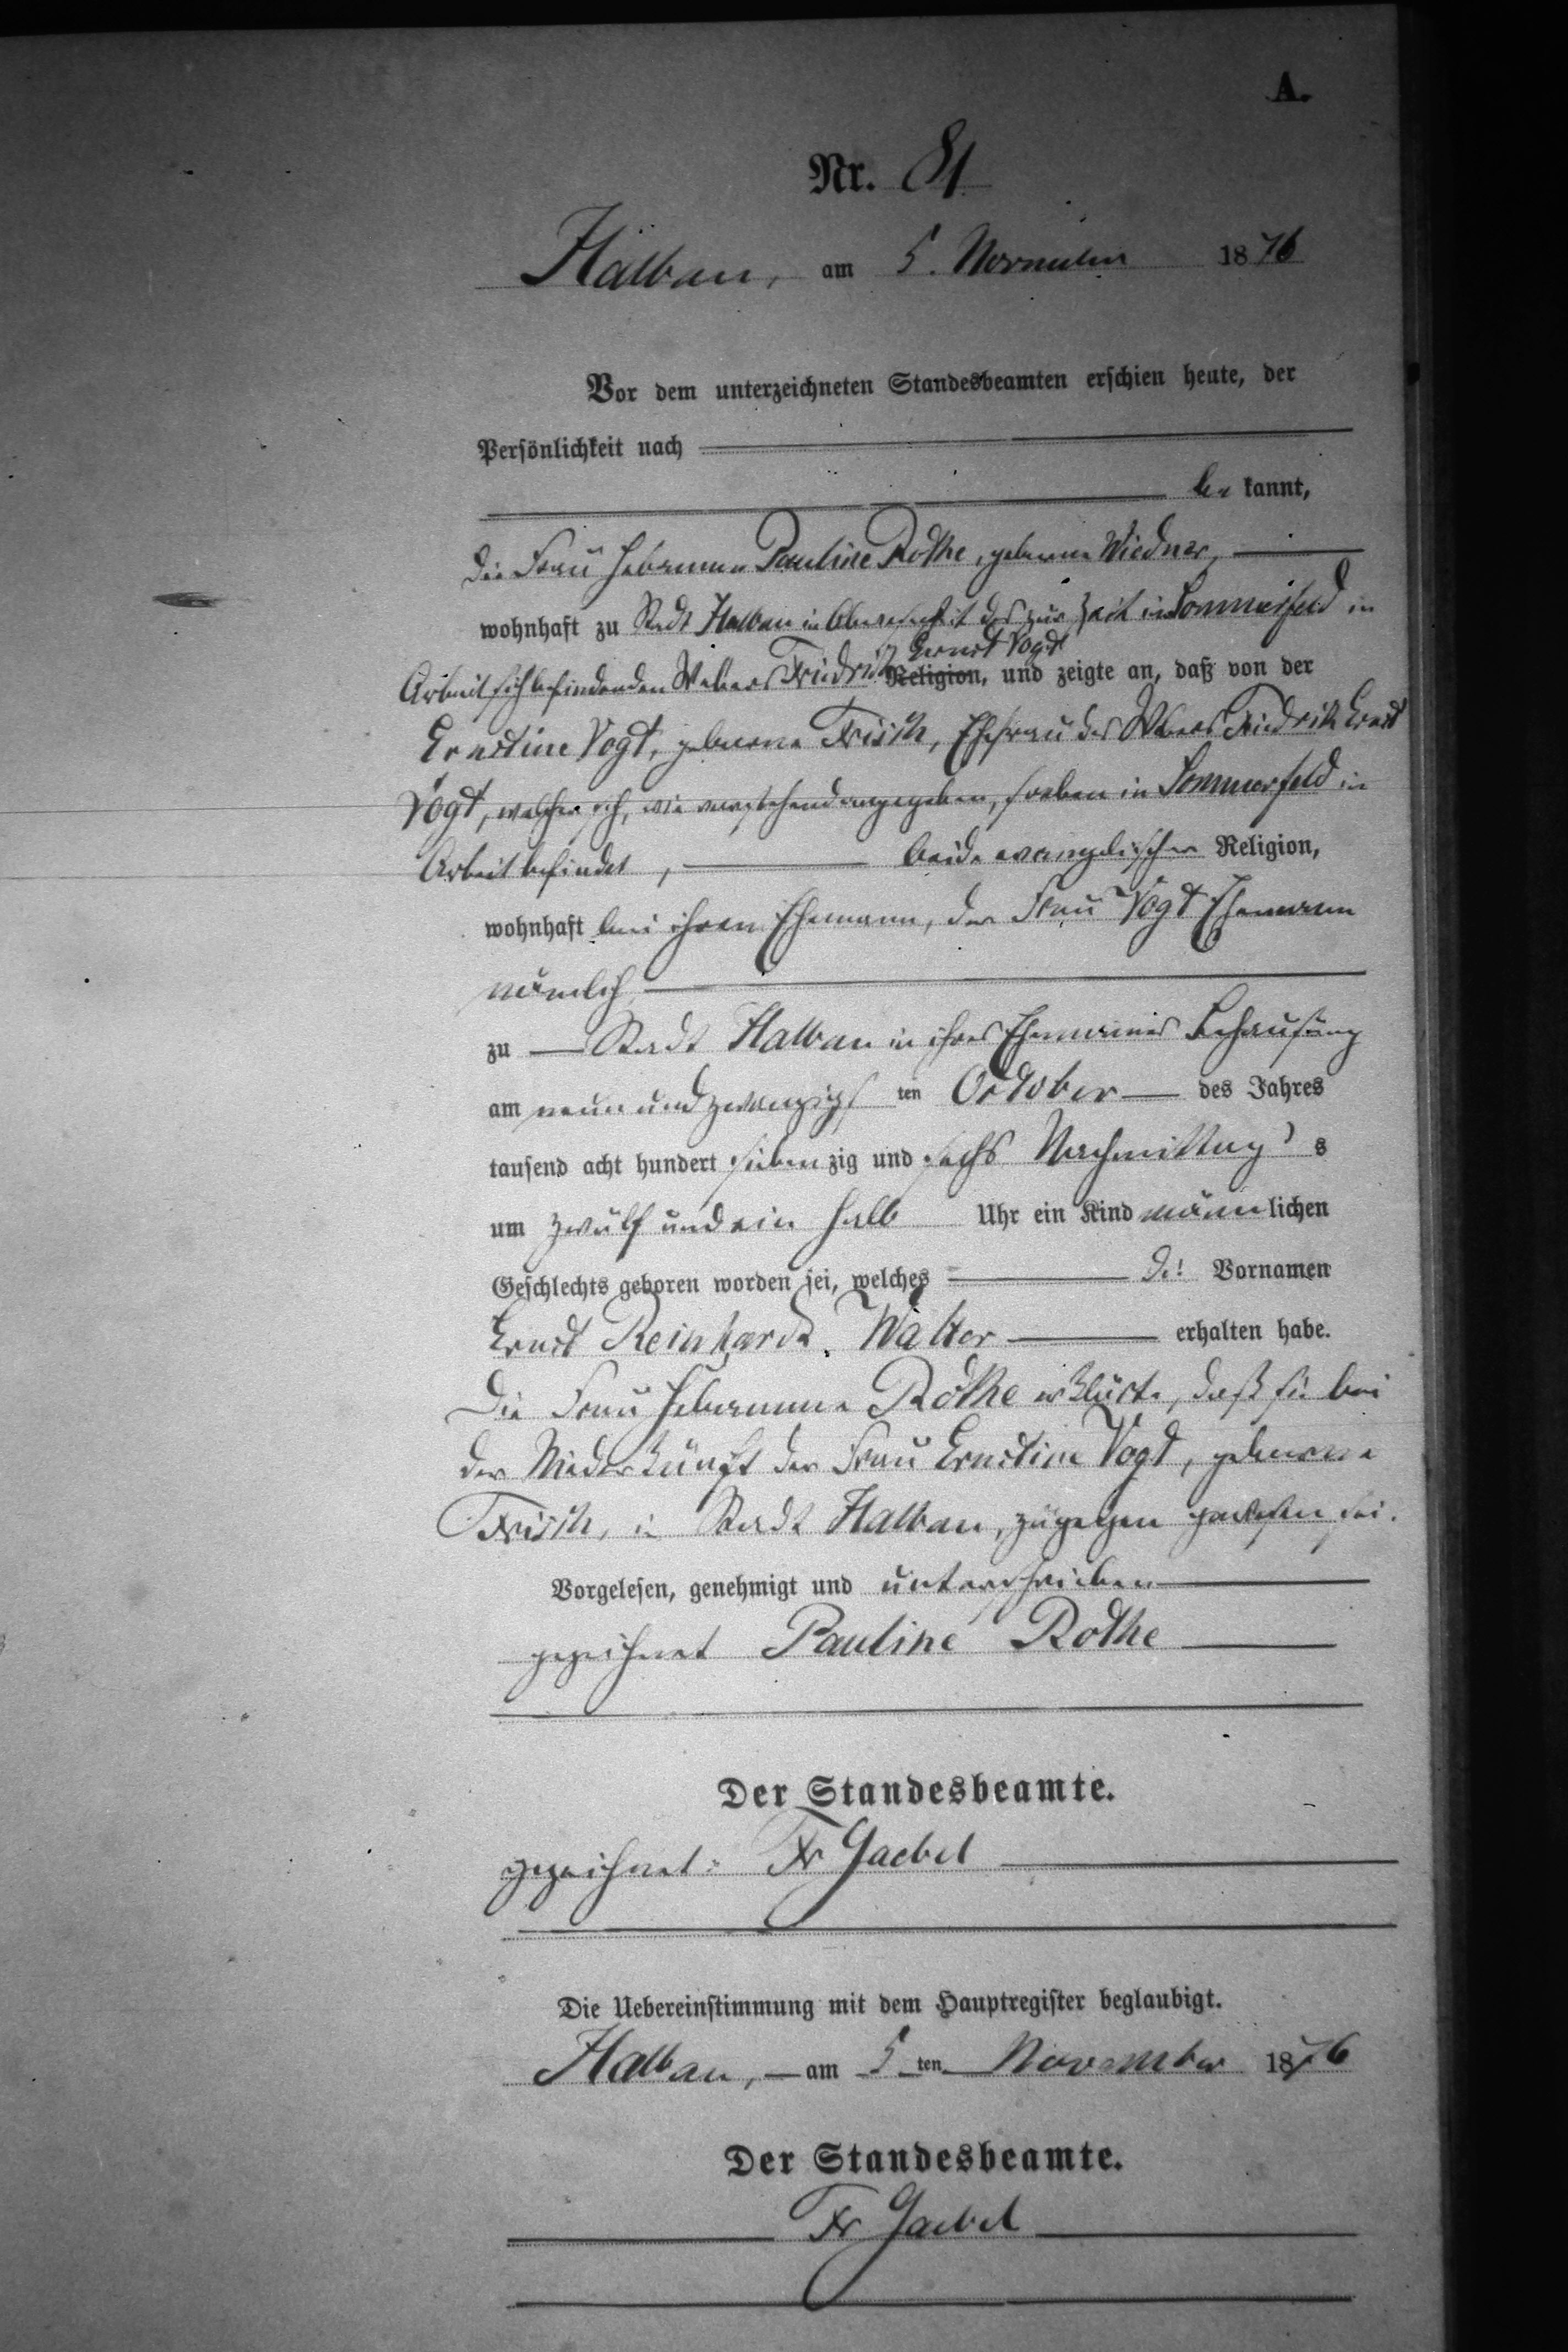 A.
Nr. 81
Halbau, am 5. November 1876
Vor dem unterzeichneten Standesbeamten erschien heute, der
Persönlichkeit nach
be kannt,
die Frau Hebamme Pauline Rothe, geborene Wiedner,
wohnhaft zu Stadt Halbau in Abwesenheit des zur Zeit in Sommerfeld in
Ernst Vogt
Arbeit sich befindenden Webers Friedrich Religion, und zeigte an, daß von der
Ernestine Vogt, geborene Frisch, Ehefrau des Webers Friedrich Ernst
Vogt, welcher sich, wie vorstehend angegeben, soeben in Sommerfeld in
Arbeit befindet, beide evangelischer Religion,
wohnhaft bei ihrem Ehemann, der Frau Vogt Ehemann
nämlich
zu Stadt Halbau in ihres Ehemannes Behausung
am neun und zwanzigs ten October des Jahres
tausend acht hundert sieben zig und sechs Nachmittag s
um zwölf und ein halb Uhr ein Kind männ lichen
Geschlechts geboren worden sei, welches die Vornamen
Ernst Reinhardt Walter erhalten habe.
Die Frau Hebamme Rothe erklärte, daß sie bei
der Niederkunft der Frau Ernestine Vogt, geborene
Frisch, in Stadt Halbau, zugegen gewesen sei.
Vorgelesen, genehmigt und unterschrieben
gezeichnet Pauline Rothe
Der Standesbeamte.
gezeichnet: Fr Gaebel
Die Uebereinstimmung mit dem Hauptregister beglaubigt.
Halbau, am 5 ten November 1876
Der Standesbeamte.
Fr Gaebel